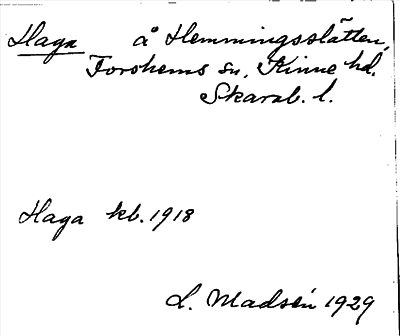 Haga å Hemmingsslätten,
Forshems sn, Kinne hd.
Skarab. l.
Haga kb. 1918
L. Madsén 1929